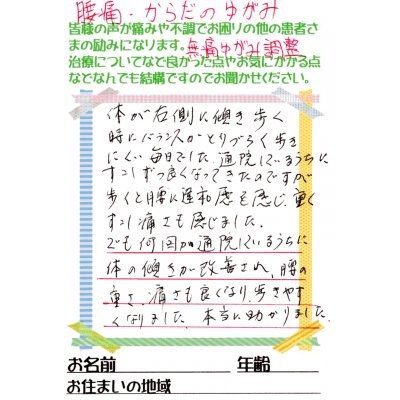 腰痛・からだのゆがみ
皆様の声が痛みや不調でお困りの他の患者さ
まの励みになります。無痛ゆがみ調整
治療についてなと良かった点やお気にかかる点
などなんでも結構ですのでお聞かせください。
体が右側に傾き歩く
時にバランスがとりづらく歩き
にくい毎日でした。通院しているうちに
すこしずつ良くなってきたのですが
歩くと腰に違和感を感じ、重く
すこし痛さも感じました。
でも何回か通院しているうちに
体の傾きが改善され、腰の
重さ、痛さも良くなり、歩きやす
くなりました。本当に助かりました。
お名前 年齢
お住まいの地域